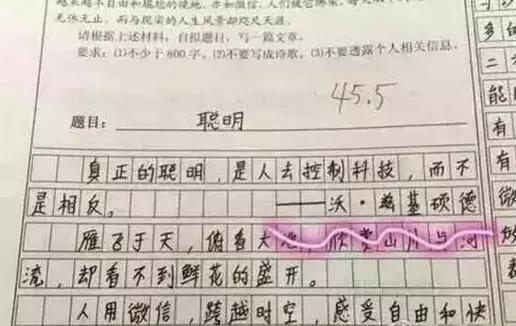 越来越不自由和尴尬的境地,亦如微信,人们被它绑架,
无休无止,而与现实的人生风景却咫尺天涯。
请根据上述材料,自拟题目,写一篇文章。
要求:(1)不少于800字,(2)不要写成诗歌,(3)不要透露个人相关信息。
45.5
题目: 聪明
真正的聪明,是人去控制科技,而不
是相反。
——沃·兹基硕德
雁飞于天,俯看大地,欣赏山川与河
流,却看不到鲜花的盛开。
人用微信,跨越时空,感受自由和快
多
的
二
能
有
有
微